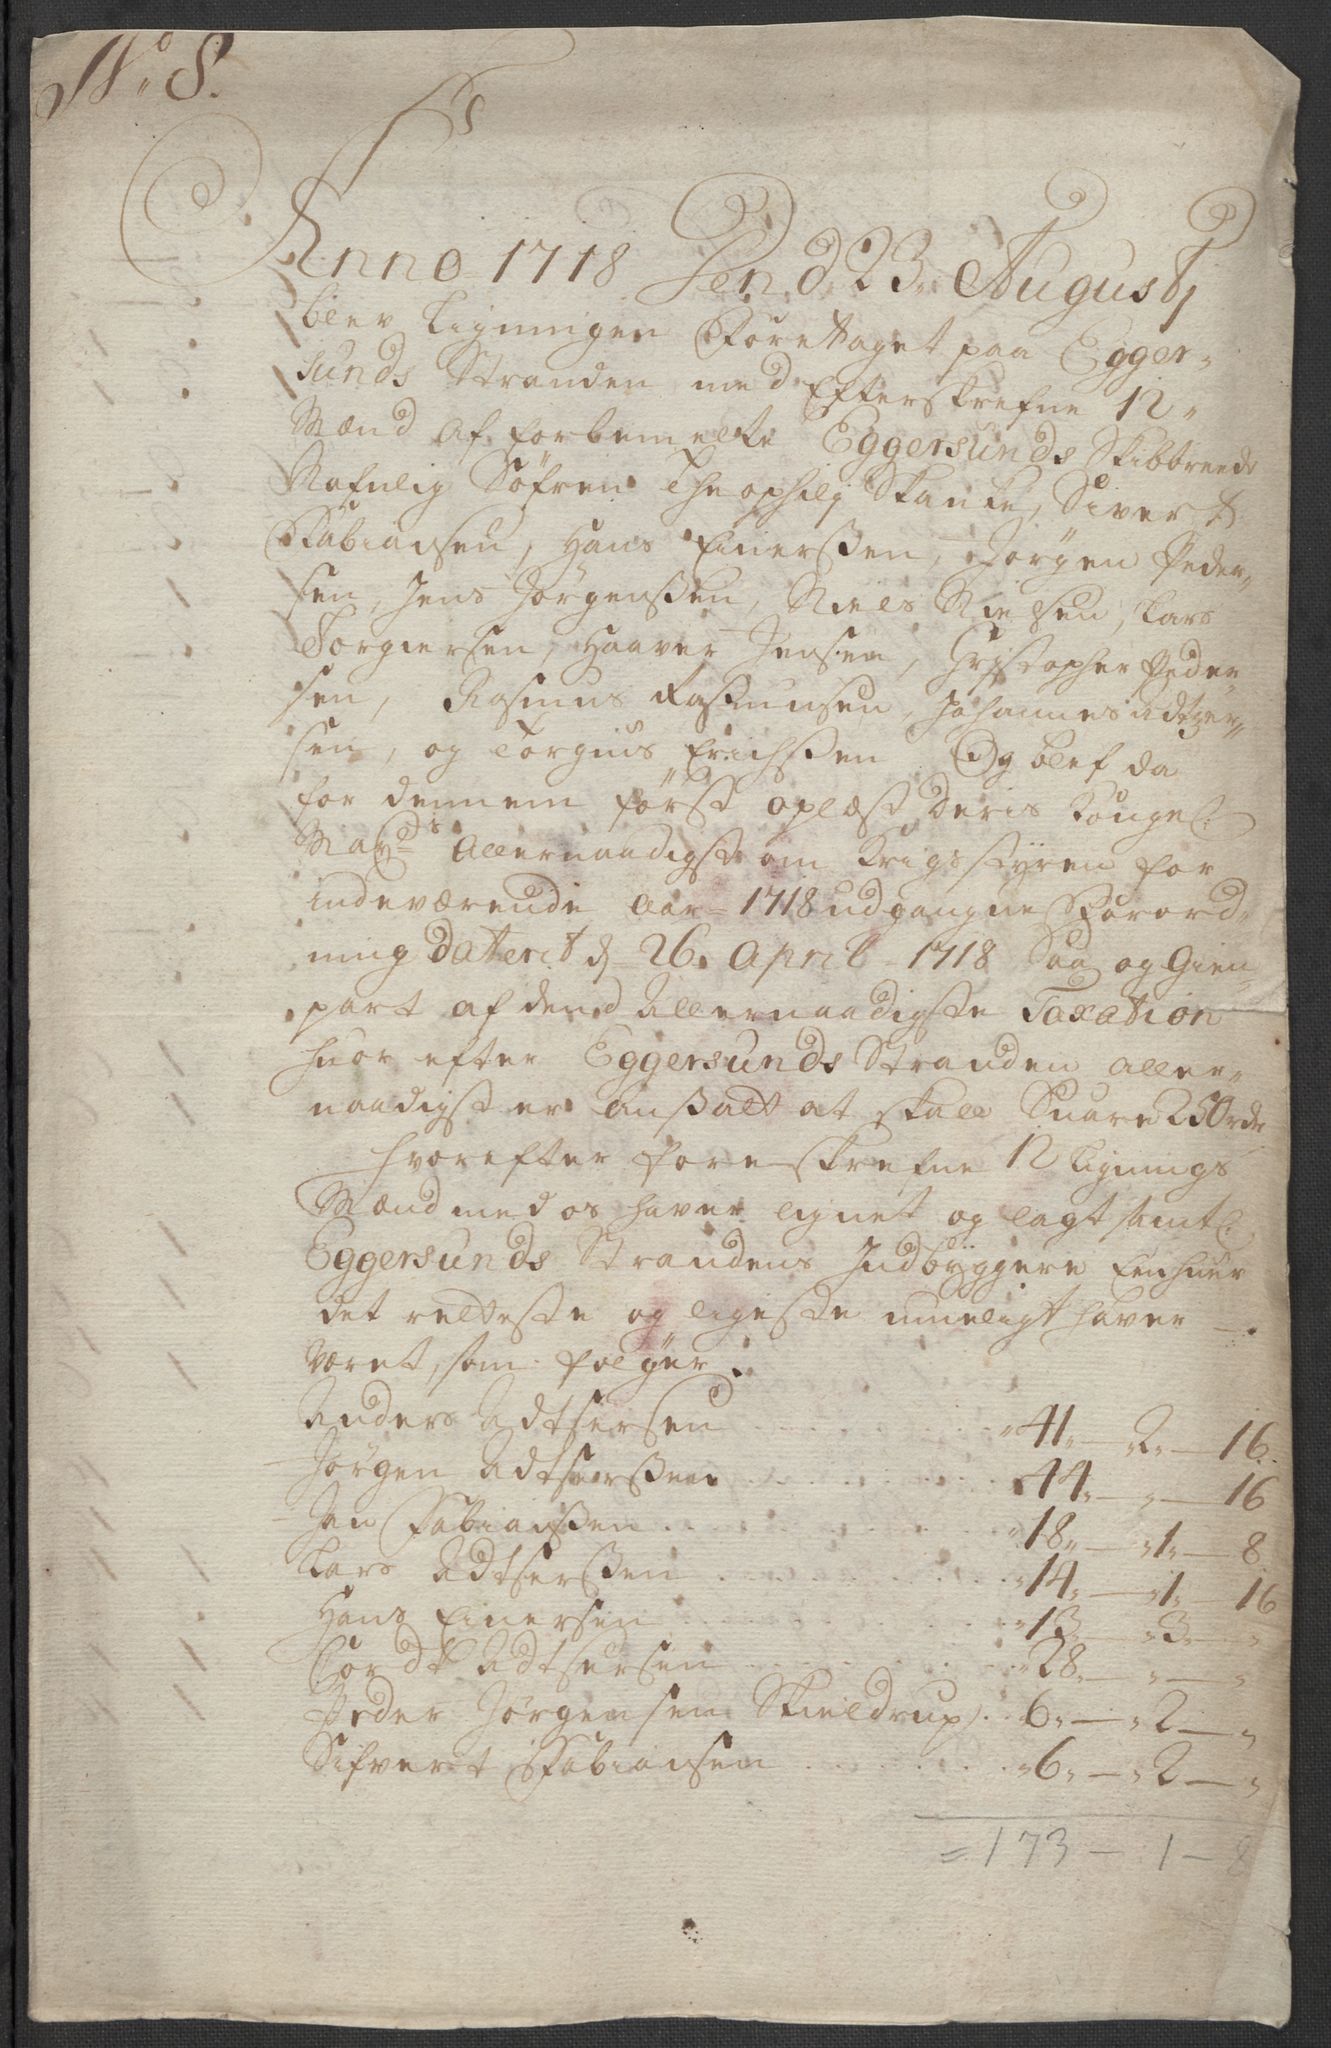 No 8.
Anno 1718 Den d. 23. Augustj
blev Ligningen Foretaget paa Egger-
sunds Stranden med Efterskrefne 12
Mænd af forbemelte Eggersunds Skibbreede
Nafnlig Söfren Theophilj Skanke, Sivert
Fabiansen, Hans Einerssen, Jörgen Peder-
sen, Jens Jörgenssen, Niels Nielsen, Lars
Torgiersen, Haaver Jensen, Christopher Peder
sen, Rasmus Rasmusen, Johannes Adtzer-
sen, og Torgius Erichssen Og blef da
for dennem först oplæst Deris Kongel:
Mayts Allernaadigst om Krigsstyren for
indeværende Aar 1718 udgangne Forord-
ning Daterit d 26. April 1718 Saa og Gien
part af dend Allernaadigste Taxation
huor efter Eggersunds Stranden Aller-
naadigst er Anssatt at skall Suare 250 rdr
Hvorefter foreskrefne 12 Lignings
Mænd med os haver lignet og lagt samtl:
Eggersunds Strandens Indbyggere Eenhuer
det retteste og ligeste mueligt haver
været, som fölger.
Anders Adtsersen . . . 41 - 2 - 16
Jörgen Adtserssen . . . 44 - " - 16
Jan Fabianssen . . . 18 - 1 - 8
Lars Adtserssen . . . 14 - 1 - 16
Hans Einersen . . . 13 - 3 - "
Cordt Adtsersen . . . 28 - " - "
Peder Jörgensen Skieldrup . . 6 - 2 - "
Sifvert Fabiansen . . . 6 - 2 - "
= 173 - 1 - 8